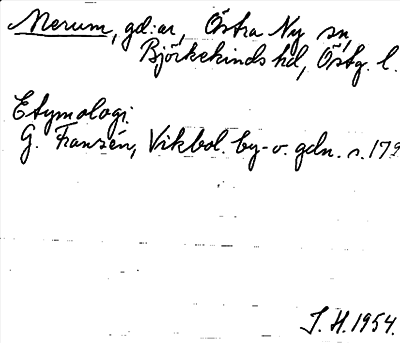 Merum, gd:ar, Östra Ny sn,
Björkekinds hd, Östg. l.
Etymologi.
G. Franzén, Vikbol. by- o. gdn. s. 179
J. H. 1954.